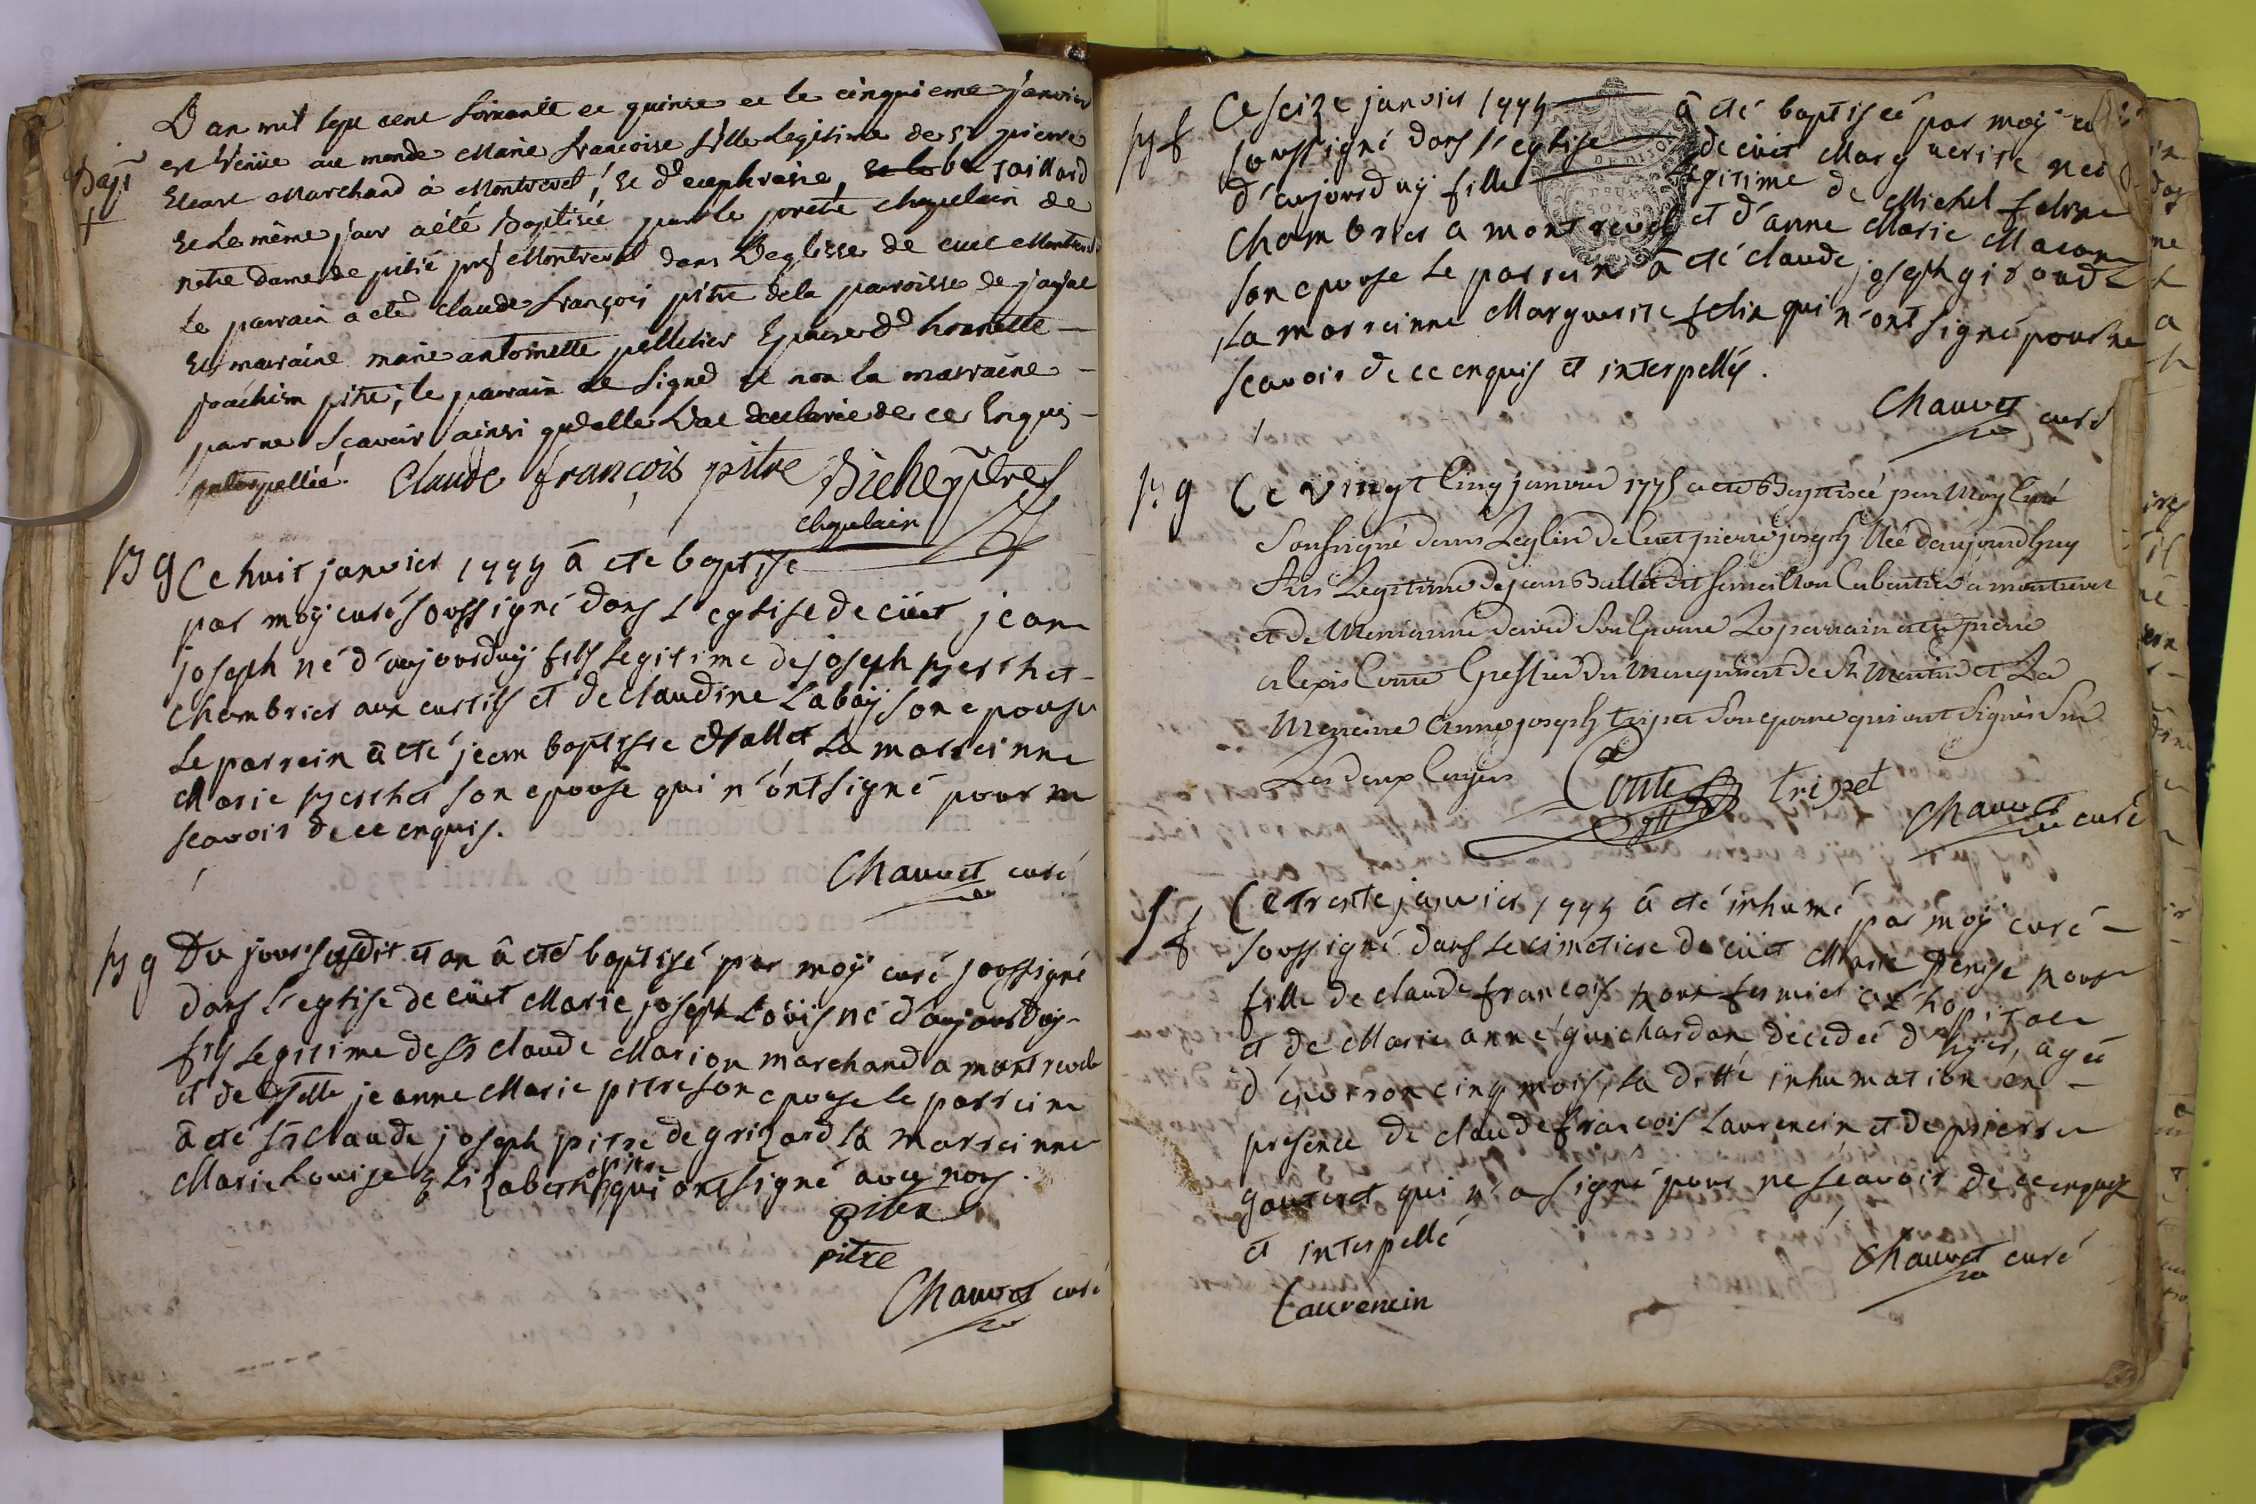 Bapt
L'an mil sept cent soixante et quinze et le cinquieme janvier
est venüe au monde Marie francoise fille legitime de sr pierre
marchand à Montrevel, et de dle euphrasie saillard
et le même jour a été baptisée par le pretre chapelain de
notre dame de pitié près Montrevel dans l'eglisse de cuet Montrevel
le parrain a été claude françois pitre de la paroisse de jayat
et marraine marie antoinette pelletier epouse de honnette
joachim pitre, le parrain a signé et non la marraine
par ne sçavoir ainsi qu'elle l'at declarée de ce enquis
interpellée. Claude françois pitre
chapelain
B g Ce huit janvier 1775 â eté baptisé
par moÿ curé soussigné dans l'eglise de cüet jean
joseph né d'aujourduÿ fils legitime de joseph perthet
chambrier aux curtils et de claudine Labaÿ son epouse
Le parrein â eté jean baptiste Mallet La marreinne
Marie perthet son epouse qui n'ont signé pour ne
scavoir de ce enquis.
Chauvet curé
B g Du jour susdit et an â eté baptisé par moÿ curé soussigné
dans l'eglise de cüet Marie joseph Loüis né d'aujourduÿ
fils legitime de sr claude Marion marchand a montrevel
et de dselle jeanne Marie pitre son epouse le parrein
â eté sr claude joseph pitre de grizard la marreinne
Marie Louise Elizabeth pitre qui ont signé avec nous.
pitre
pitre
Chauvet curé
B f Ce seize janvier 1775 â eté baptisée par moÿ
soussigné dans l'eglise de cüet Marguerite née
d'aujourduÿ fille legitime de Michel felix
chambrier a montrevel et d'anne Marie Macon
son epouse Le parrein â eté claude joseph giroud
La marreinne Marguerite felix qui n'ont signé pour ne
scavoir de ce enquis et interpellés.
Chauvet curé
B. g Ce vingt Cinq janvier 1775 a eté Baptisé par Moy Curé
Soussigné dans L'eglise de Cuet pierre joseph Né d'aujourdhuy
fils Legitime de jean Ballet dit Cabaretier a montrevel
et de Marianne david Son Epouse Le parrain a eté pierre
alexis Conte Greffier du Marquisat de St Martin et La
Marreine Anne joseph tripet Son epouse qui ont Signés Sur
Les deux Cayers
Conte tripet
Chauvet curé
S f Ce trente janvier 1775 â eté inhumé par moÿ curé
soussigné dans le cimetiere de cüet Marie Denise
fille de claude francois fermier a l'hopital
et de Marie anne guichardon decedée d'hÿer, agée
d'environ cinq mois, La ditte inhumation en
presence de claude francois Laurencin et de pierre
gauteret qui n'a signé pour ne scavoir de ce enquis
et interpellé
Chauvet curé
Laurencin